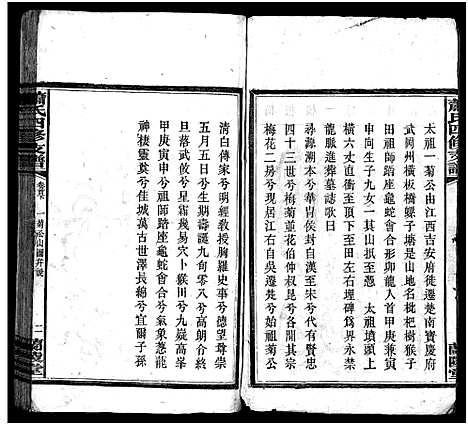 蕭氏四修支譜
太祖一菊公由江西吉安府徙遷楚南寶慶府
武岡州橫板橋騾子塘是山地名枇杷樹猴子
田祖師踏座龜蛇會合形卯龍入首甲庚兼寅
申向生子九女一其山抵至憑 太祖墳頭上
橫六丈直下至田止左右埋碑為界永禁
龍脈進葬墓誌歌曰
尋源溯本兮華冑侯封自漢至宋兮代有賢忠
四十三世兮梅菊蓮花有伯仲叔昆兮各開其宗
梅花二房兮現居江右自吳遷楚兮始祖菊公
清白傳家兮明經教授胸羅史事兮德望尊崇
五月五日兮生期壽誕九旬零九兮高朝合終
日落武攸兮星霜幾易穴卜猴田兮九原高風
甲庚寅申兮祖師踏座龜蛇會合兮氣象葱蘢
神棲靈莫兮佳城萬古世澤長綿兮宜爾子孫
蕭氏四修支譜
卷首
一菊公山圖并說
二
蘭陵堂
蘭陵堂